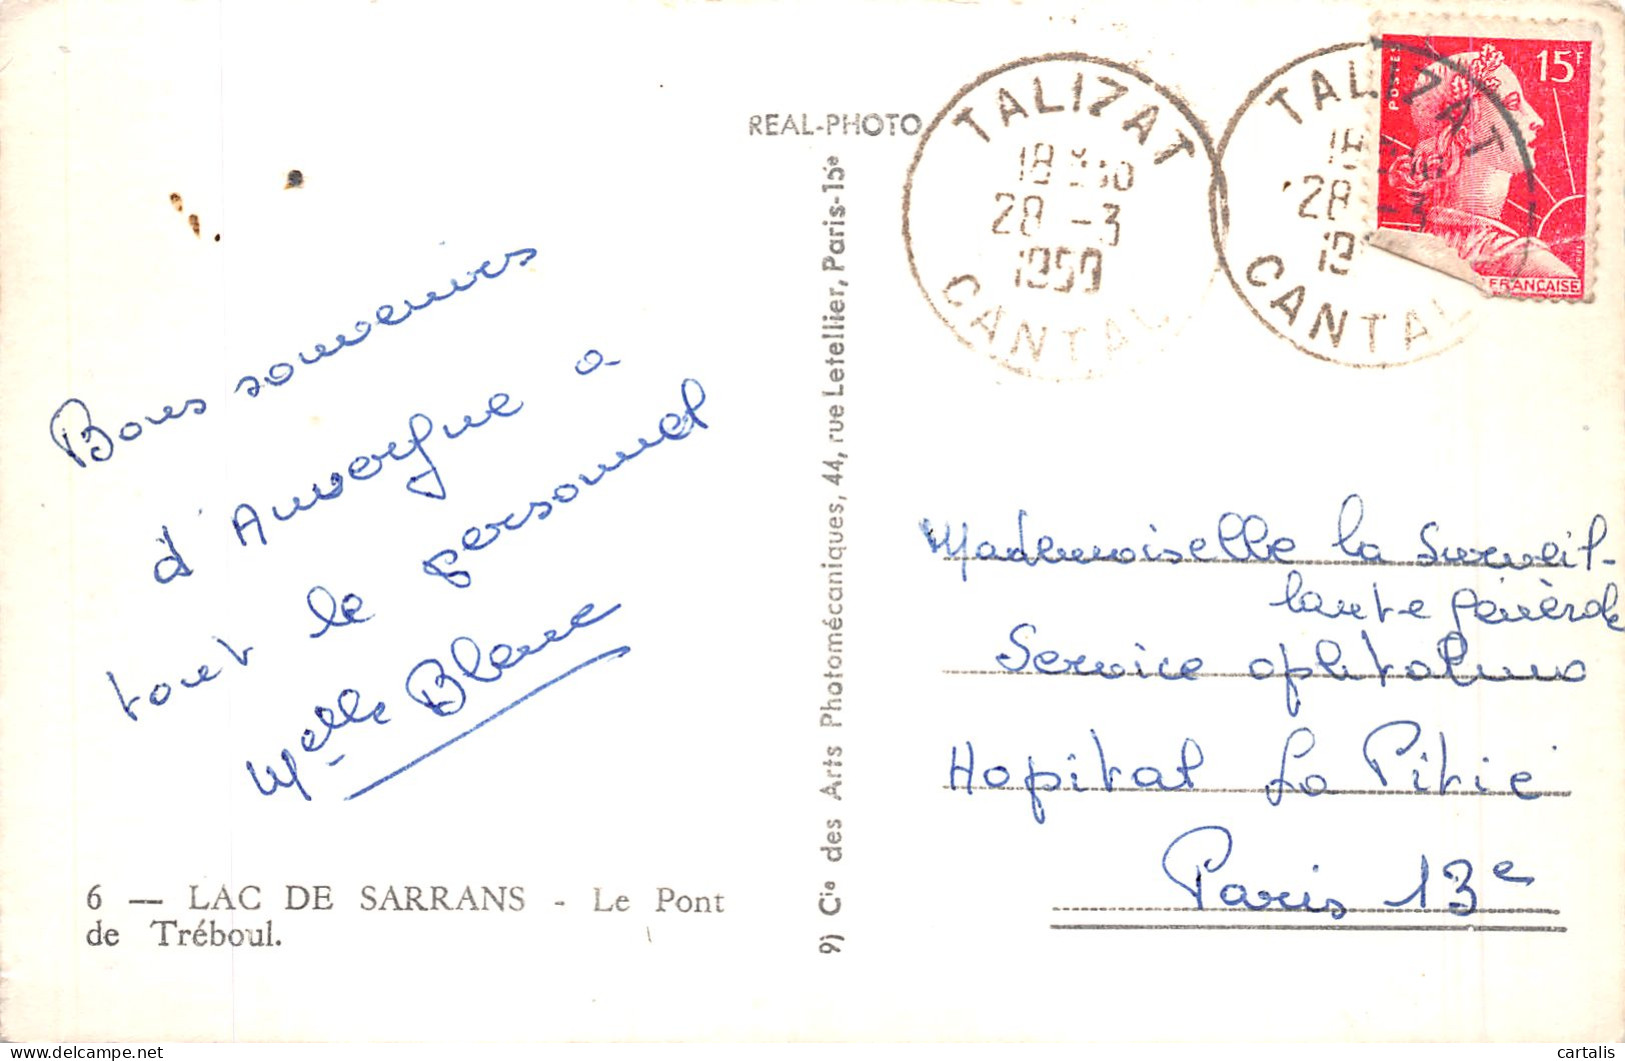 REAL-PHOTO
TALIZAT
28 -3
CANTAL
TALIZAT
28 -3
CANTAL
POSTES
15F
FRANÇAISE
Bons souvenirs
d'Auvergne à
tout le personnel
Melle Blanc
6 — LAC DE SARRANS - Le Pont
de Tréboul.
9) Cie des Arts Photomécaniques, 44, rue Letellier, Paris-15e
Mademoiselle la Surveil-
lante générale
Service ophtalmo
Hopital La Pitié
Paris 13e
cartalis
delcampe.net